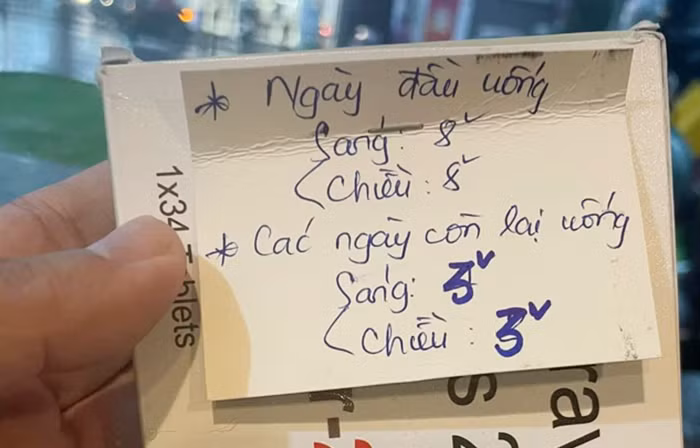 * Ngày đầu uống
Sáng: 8v
Chiều: 8v
* Các ngày còn lại uống
Sáng: 3v
Chiều: 3v
1x34 T blets